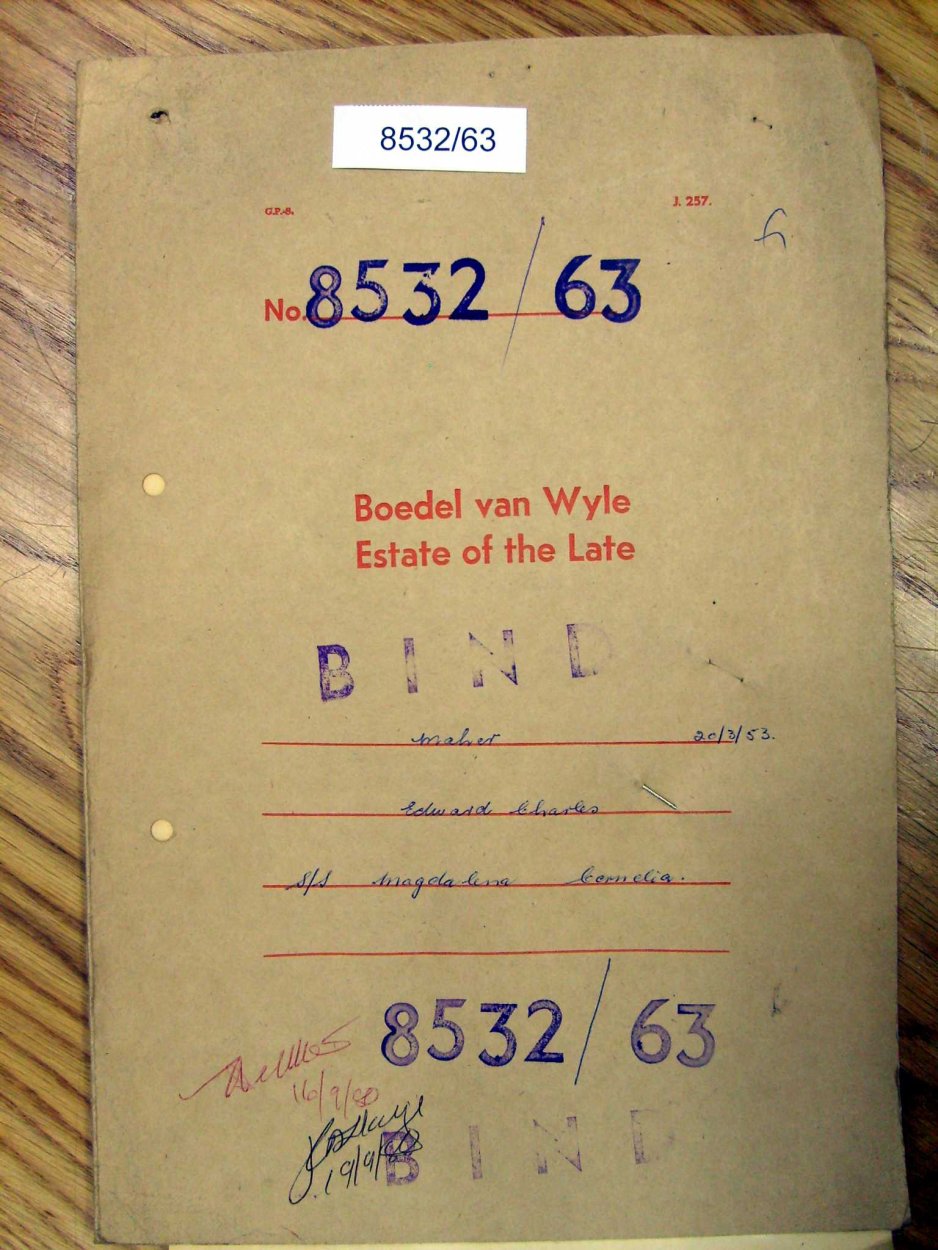 8532/63
G.P.-S. J. 257.
No. 8532/63
Boedel van Wyle
Estate of the Late
BIND
Maher 20/3/53.
Edward Charles
s/s Magdalena Cornelia.
8532/63
16/9/80
19/9/
BIND